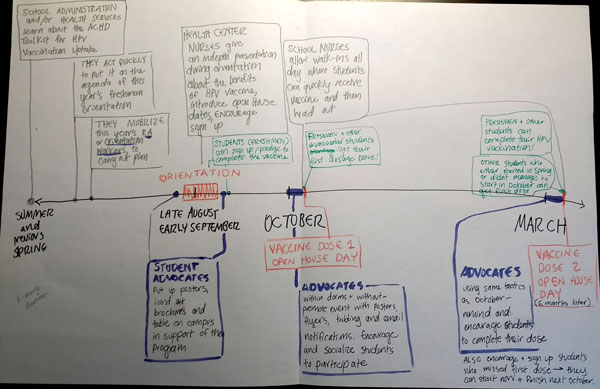 SCHOOL ADMINISTRATION
and/or HEALTH SERVICES
learn about the ACHD
Toolkit for HPV
Vaccination Uptake
THEY ACT QUICKLY
to put it on the
agenda of this
year's freshman
Orientation
THEY MOBILIZE
this year's RA
or Orientation
Workers, to
carry out plan
HEALTH CENTER
NURSES give
an indepth presentation
during orientation
about the benefits
of HPV vaccine,
introduce open House
dates, encourage
sign up
STUDENTS (FRESHMEN)
can sign up/pledge to
complete the vaccine
SCHOOL NURSES
allow walk-ins all
day where students
can quickly receive
vaccine and then
head out
FRESHMEN + other
unvaccinated students
get their
first dosage done.
FRESHMEN + Other
students can
complete their HPV
vaccination!
OTHER students who
either started in Spring
or didnt manage to
start in October can
get first dose
ORIENTATION
SUMMER
and
previous
SPRING
LATE AUGUST
EARLY SEPTEMBER
OCTOBER
MARCH
VACCINE DOSE 1
OPEN HOUSE DAY
VACCINE
DOSE 2
OPEN HOUSE
DAY
(6 months later)
STUDENT
ADVOCATES
Put up posters,
hand out
brochures and
table on campus
in support of the
program
ADVOCATES
within dorms + without-
promote event with posters,
flyers, tabling and email
notifications. Encourage
and socialize students
to participate
ADVOCATES
using same tactics
as October-
remind and
encourage students
to complete their dose
ALSO encourage + sign up students
who missed first dose → they
can start now + finish next October